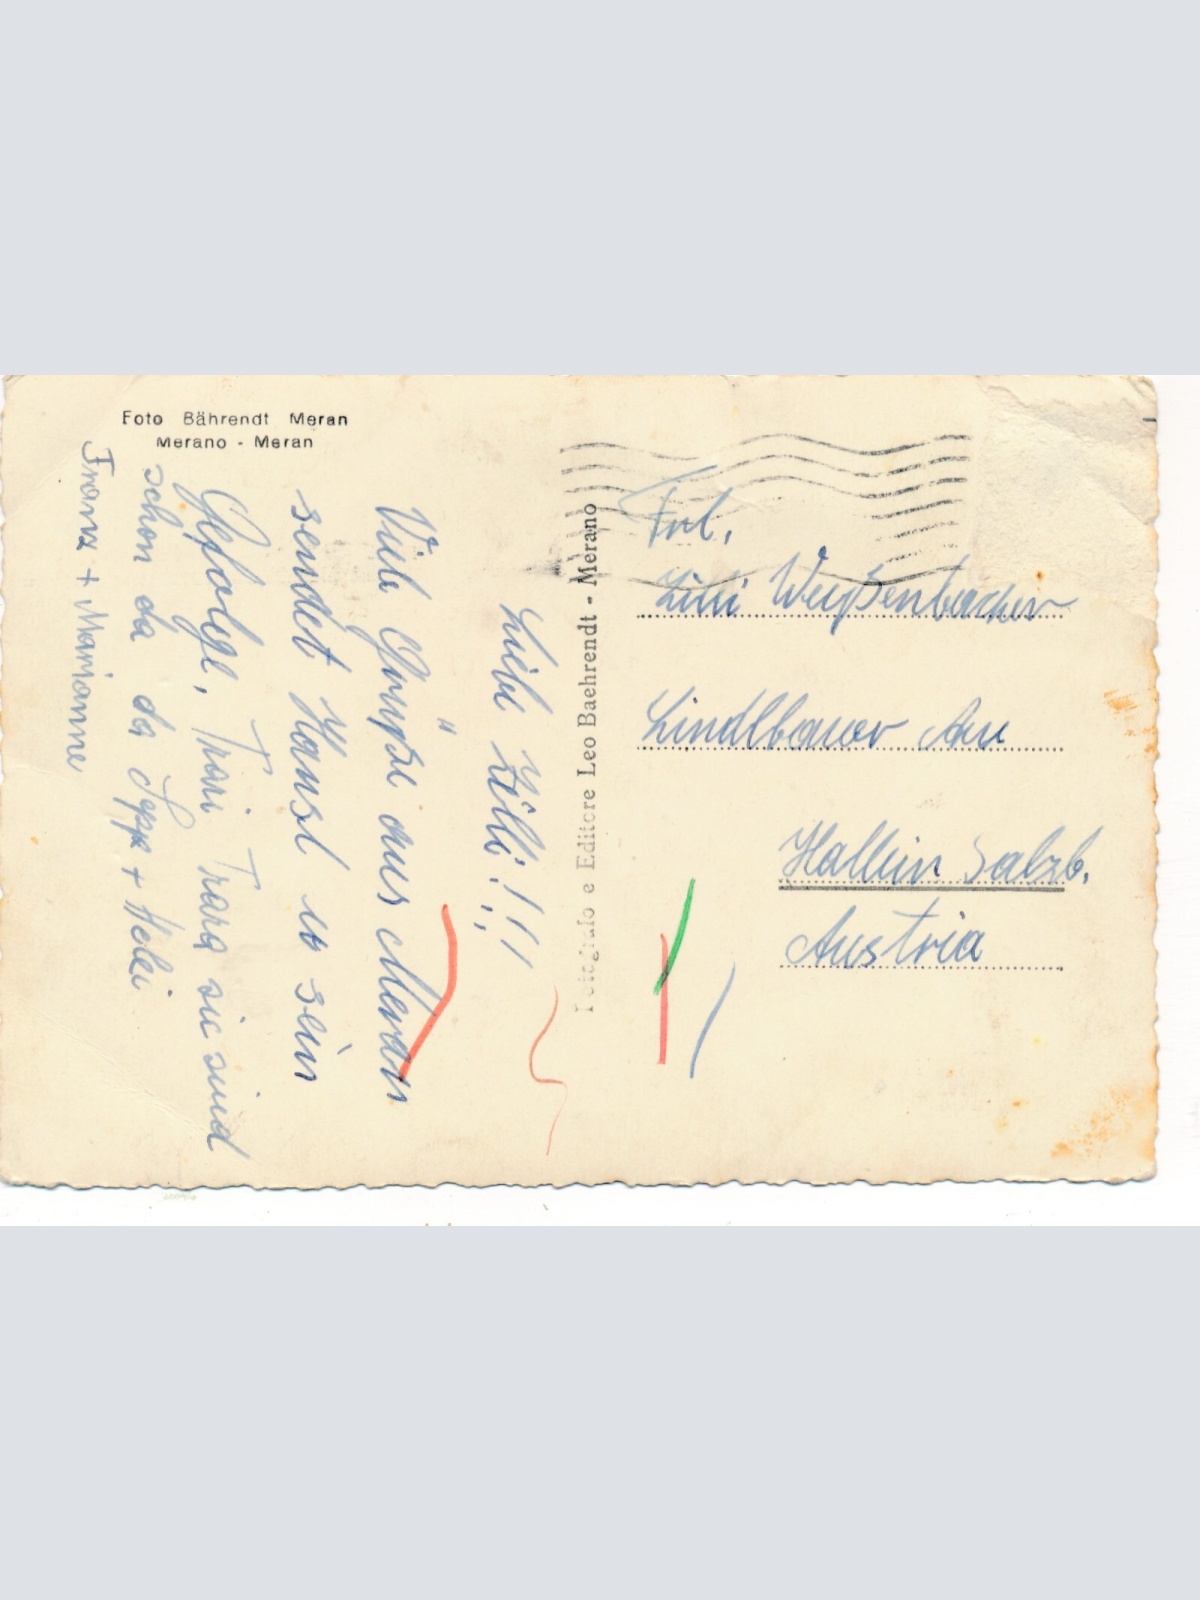 Foto Bährendt Meran
Merano - Meran
Liebe Lilli!!!
Viele Grüße aus Meran
sendet Hansl u sein
Gefolge, Trari Trara sie sind
schon da da Sepp + Heli
Franz + Marianne
Fotografo e Editore Leo Baehrendt - Merano
Frl.
Lilli Weißenbacher
Lindlbauer Au
Hallein Salzb.
Austria